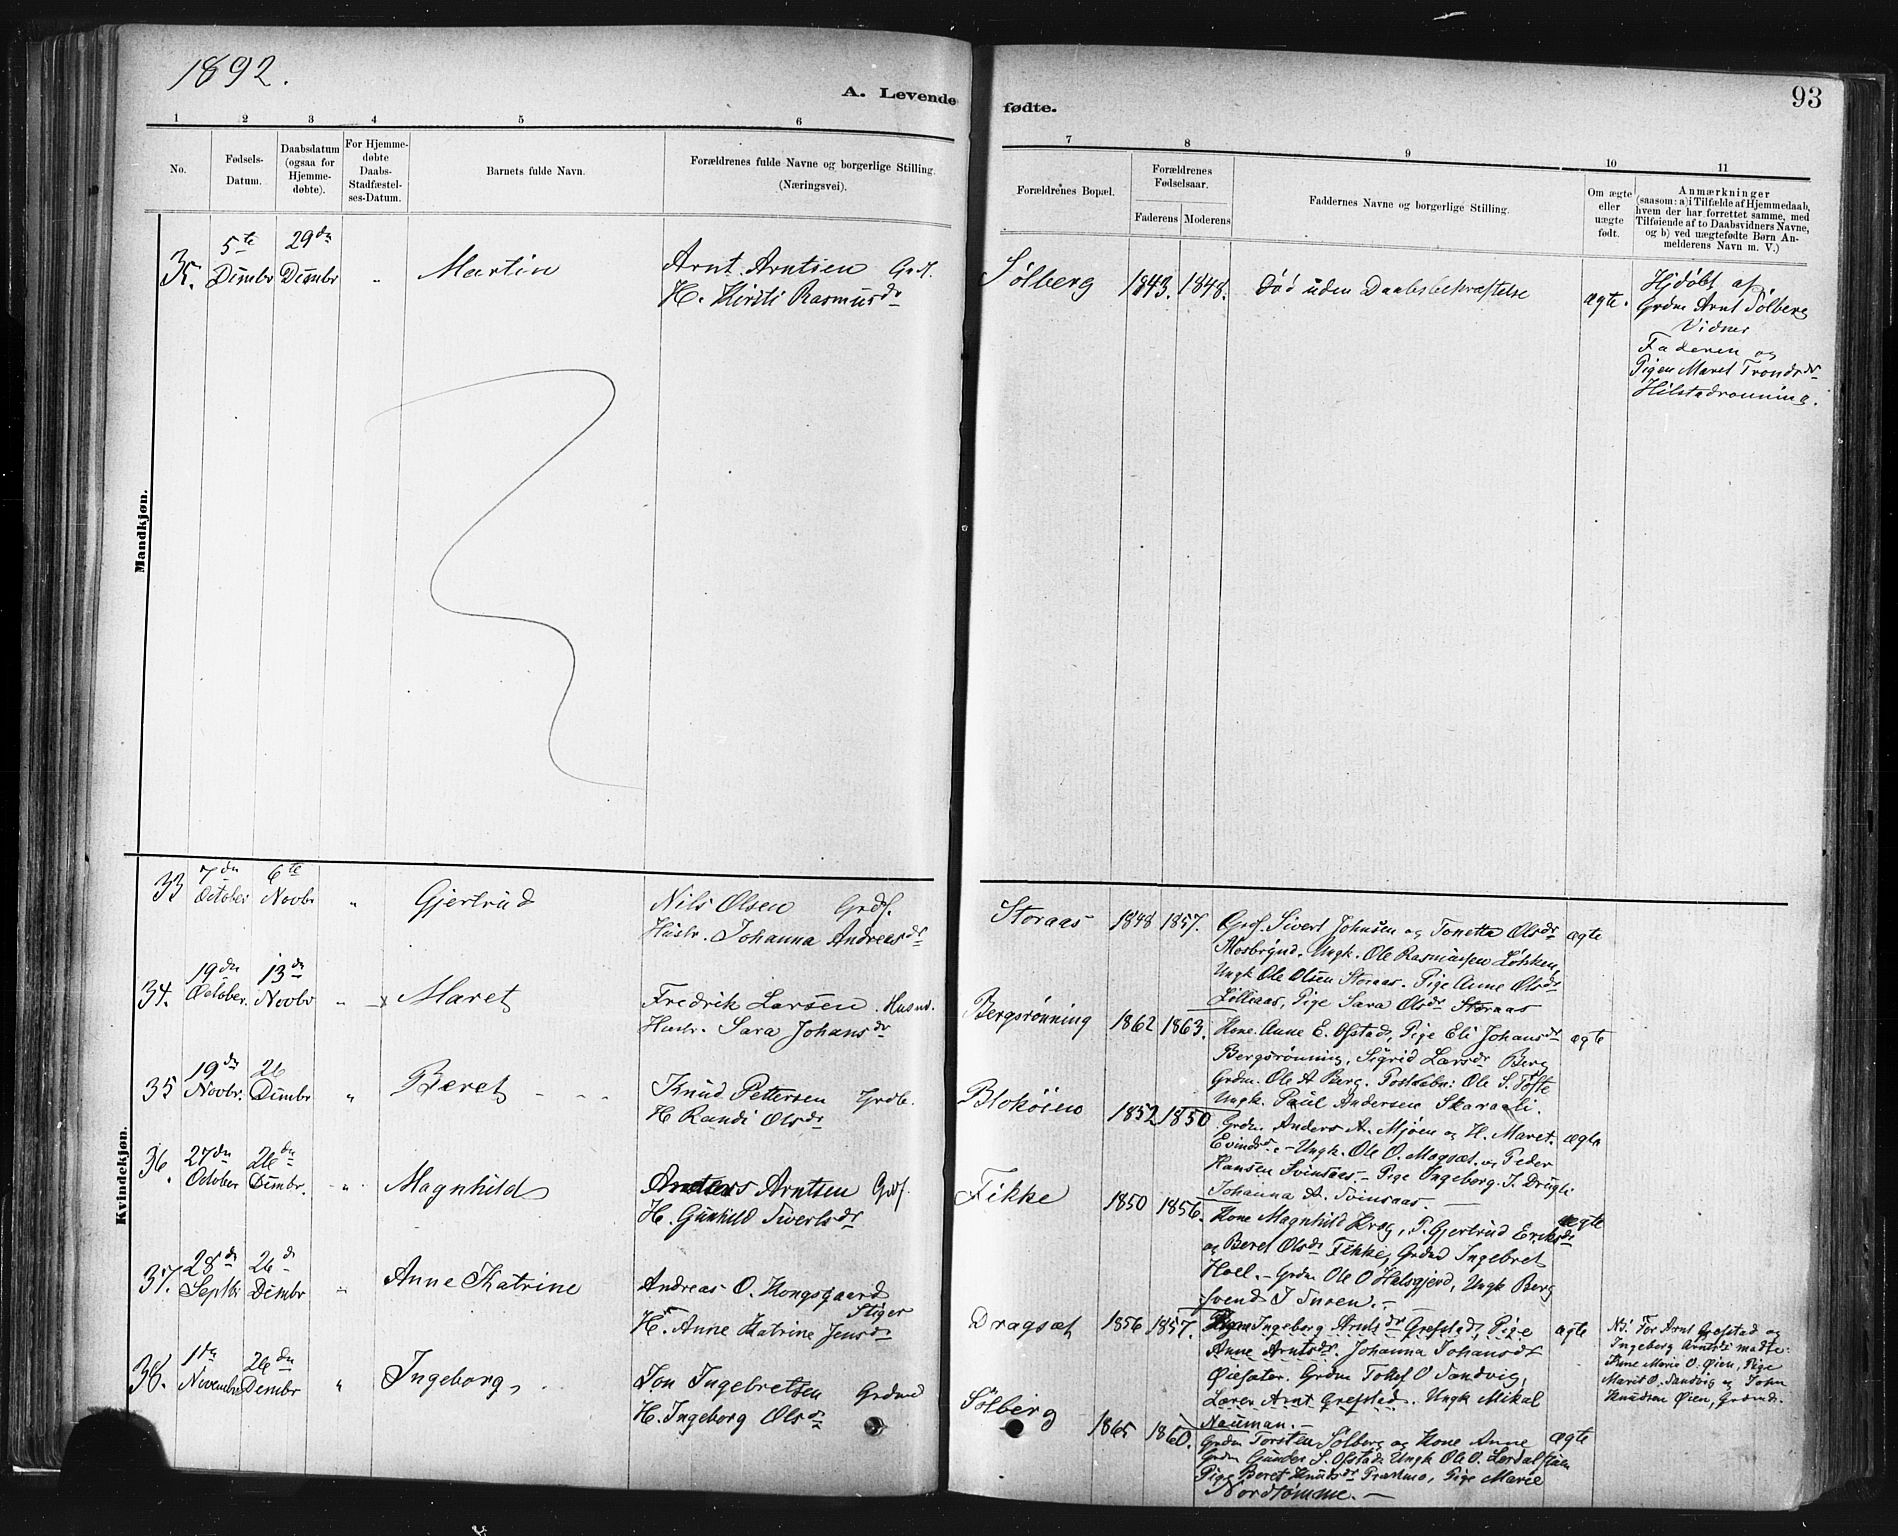 1892.
A. Levende fødte.
93
1 2 3 4 5 6 7 8 9 10 11
No.
Fødsels-
Datum.
Daabsdatum
(ogsaa for
Hjemme-
døbte).
For Hjemme-
døbte
Daabs-
Stadfæstel-
ses-Datum.
Barnets fulde Navn.
Forældrenes fulde Navne og borgerlige Stilling.
(Næringsvei).
Forældrenes Bopæl.
Forældrenes
Fødselsaar.
Faderens Moderens
Faddernes Navne og borgerlige Stilling.
Om ægte
eller
uægte
født.
Anmærkninger
(saasom: a) i Tilfælde af Hjemmedaab,
hvem der har forrettet samme, med
Tilføiende af to Daabsvidners Navne,
og b) ved uægtefødte Børn An-
melderens Navn m. V.)
Mandkjøn.
35. 5te Dcmbr 29de Dcmbr „ Martin
Arnt Arntsen Grdf.
H. Kirsti Rasmusdr
Solberg 1843. 1848. Død uden Daabsbekræftelse ægte.
Hjdøbt af
Grdm Arnt Solberg
Vidner
Faderen og
Pigen Maret Trondsdr
Kvindekjøn.
33 7de October 6te Novbr „ Gjertrud
Nils Olsen Grdf.
Hustr. Johanna Andreasdr
Storaas 1848 1857.
Grdf. Sivert Johnsen og Tonetta Olsdr
Mosbrynd. Ungk. Ole Rasmussen Løkken,
Ungk Ole Olsen Storaas. Pige Anne Olsdr
Lilliaas, Pige Sara Olsdr Storaas
ægte
34. 19de October. 13de Novbr „ x Maret
Fredrik Larsen. Husmd.
Hustr. Sara Johansdr
Bergsrønning 1862 1863.
Kone Anne E. Ofstad, Pige Eli Johansdr
Bergsrønning, Sigrid Larsdr Berg
Grdm. Ole A Berg. Postaabn: Ole S. Tofte
Ungk. Paul Andersen Skaraali.
ægte
35 19de Novbr. 26 Dcmbr „ Beret
Knud Pettersen Grdb.
H Randi Olsdr
Blokøien 1852 1850
Grdm. Anders A. Mjøen og H. Maret
Evindsdr. – Ungk. Ole O. Magsæt. og Peder
Hansen Svinsaas – Pige Ingeborg J. Drugli
Johanna A. Svinsaas. –
ægte
36. 27de October 26de Dcmbr. „ Magnhild
Anders Arntsen Grdf.
H. Gunhild Sivertsdr
Fikke 1850 1856.
Kone Magnhild Krog, P. Gjertrud Eriksdr
og Beret Olsdr Fikke, Grdmd Ingebret
Hoel. – Grdm Ole O Helsgjerd, Ungk Berg
ægte
37. 28de Septbr 26de Dcmbr „ Anne Katrine
Andreas O. Kongsgaard
Stiger
H. Anne Katrine Jensdr
Dragsæt 1856 1857.
Ingeborg Arntsdr Grefstad, Pige
Anne Arntsdr. Johanna Johansdr
Øiesater. Grdm Tolef O Sandvig,
Lærer Arnt Grefstad. Ungk Mikal
Nauman. –
ægte
NB. For Arnt Grefstad og
Ingeborg Arntsdr mødte:
Anne Marie O. Øien, Pige
Marit O. Sandvig og John
Knudsen Øien, Grdmds.
38. 1de November 26de Dcmbr „ Ingeborg,
Jon Ingebretsen Grdmd
H. Ingeborg Olsdr
Solberg 1865 1860.
Grdm Torsten Solberg og Kone Anne
Grdm Gunder S. Ofstad. Ungk Ole O. Lerdalstuen
Pige Beret Knudsdr Præstmo, Pige Marie
Nordtømme. –
ægte